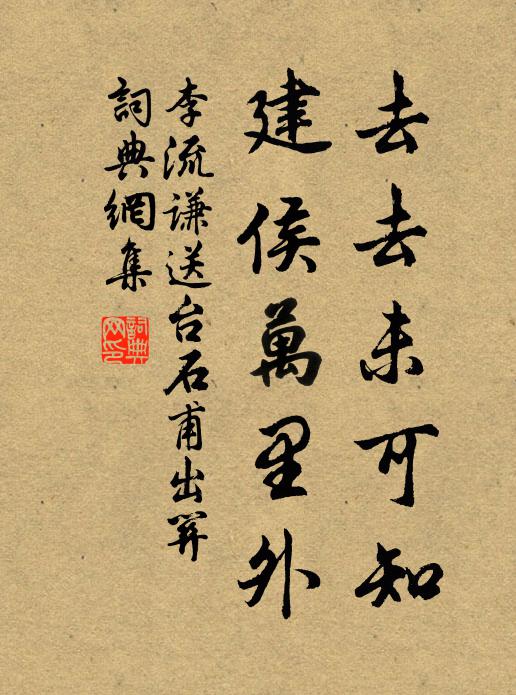 去去未可知
建侯萬里外
李流謙送台石甫出關
詞典網集
詞典網印